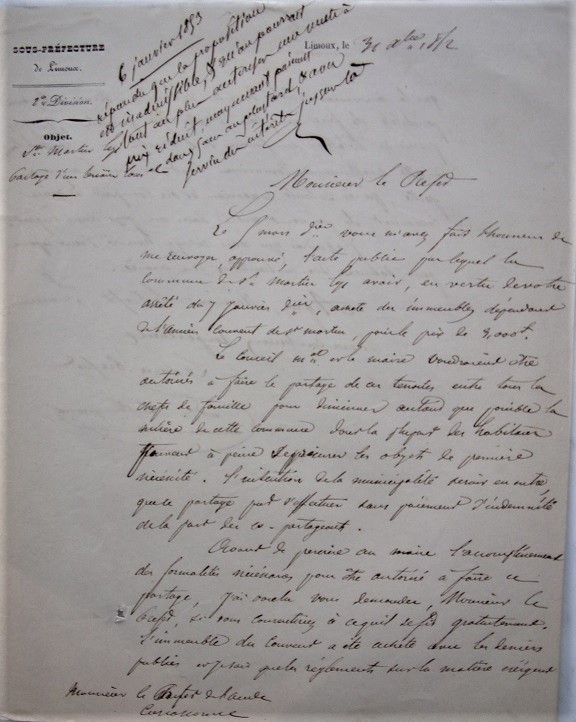 SOUS-PRÉFECTURE
de Limoux.
2e Division.
Objet.
St Martin
Partage d'un terrain
6 janvier 1853
répondu que la proposition
est inadmissible, qu'on pourrait
tout au plus autoriser une vente à
prix réduit, moyennant paiement
dans au plus tard & avec
intérêt jusque là
Limoux, le 31 Xbre 1852
Monsieur le Préfet
Le 5 mars dier vous m'avez fait l'honneur de
me renvoyer, approuvé, l'acte public par lequel la
commune de St Martin lys avait, en vertu de votre
arrêté du 7 Janvier dier, acheté des immeubles dépendant
de l'ancien Couvent de St martin, pour le prix de 8,000f.
Le Conseil mal et le maire voudraient être
autorisés à faire le partage de ces terrains entre tous les
chefs de famille pour diminuer autant que possible la
misère de cette commune dont la plupart des habitans
peuvent à peine se procurer les objets de première
nécessité. L'intention de la municipalité serait en outre
que ce partage put s'effectuer sans paiement d'indemnité
de la part des co-partageants.
Avant de prescrire au maire l'accomplissement
des formalités nécessaires pour être autorisé à faire ce
partage, j'ai voulu vous demander, Monsieur le
Préfet, si vous consentiriez à ce qu'il se fît gratuitement.
L'immeuble du Couvent a été acheté avec les deniers
publics et je sais que les règlements sur la matière exigent
Monsieur le Préfet de l'aude
Carcassonne